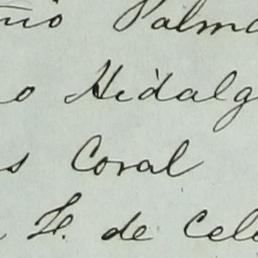 nio Palma
o Hidalg
s Coral
F. de Cele